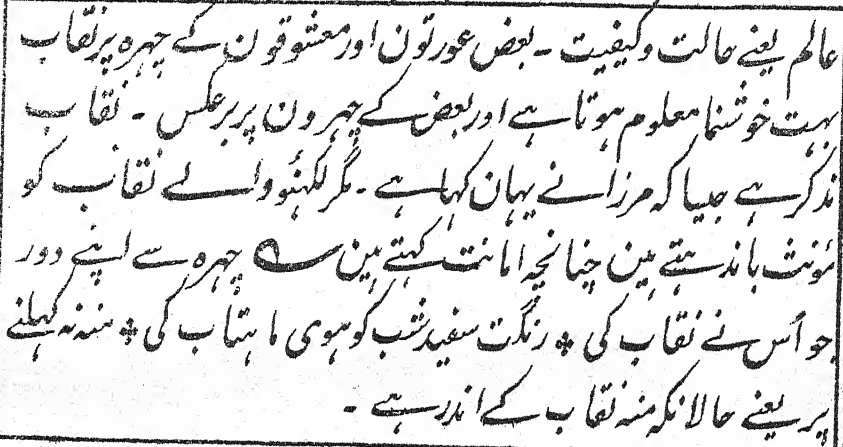 عالم یعنے حالت وکیفیت ۔ بعض عورتون اور معشوقون کے چہرہ پر نقاب
بہت خوشنما معلوم ہوتا ہے اور بعض کے چہرون پر برعکس ۔ نقاب
مذکر ہے جیسا کہ مرزا نے یہان کہا ہے ۔ مگر لکہنؤ والے نقاب کو
مؤنث باندہتے ہین چنانچہ امانت کہتے ہین ؎ چہرہ سے اپنے دور
جو اُس نے نقاب کی ٭ رنگت سفید شب کو ہوی ماہتاب کی ٭ منہ نہ کہلنے
پر یعنے حالانکہ منہ نقاب کے اندر ہے ۔